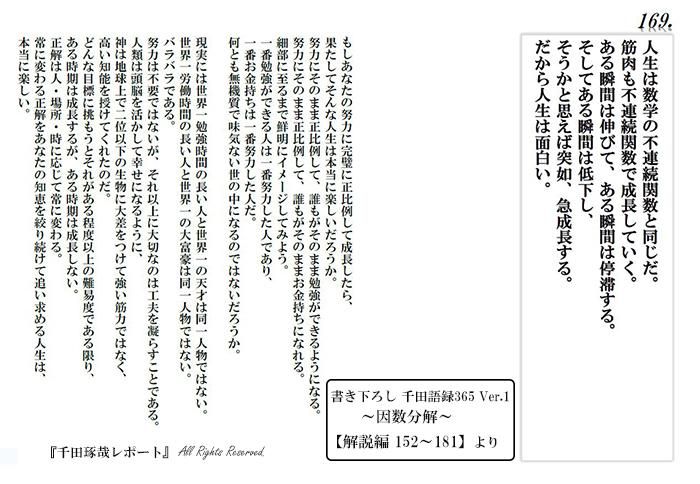 169.
人生は数学の不連続関数と同じだ。
筋肉も不連続関数で成長していく。
ある瞬間は伸びて、ある瞬間は停滞する。
そしてある瞬間は低下し、
そうかと思えば突如、急成長する。
だから人生は面白い。
もしあなたの努力に完璧に正比例して成長したら、
果たしてそんな人生は本当に楽しいだろうか。
努力にそのまま正比例して、誰もが勉強ができるようになる。
努力にそのまま正比例して、誰もがそのままお金持ちになれる。
細部に至るまで鮮明にイメージしてみよう。
一番勉強ができる人は一番努力した人であり、
一番お金持ちは一番努力した人だ。
何とも無機質で味気ない世の中になるのではないだろうか。
現実には世界一勉強時間の長い人と世界一の天才は同一人物ではない。
世界一労働時間の長い人と世界一の大富豪は同一人物ではない。
バラバラである。
努力は不要ではないが、それ以上に大切なのは工夫を凝らすことである。
人類は頭脳を活かして幸せになるように、
神は地球上で二位以下の生物に大差をつけて強い筋力ではなく、
高い知能を授けてくれたのだ。
どんな目標に挑もうとそれがある程度以上の難易度である限り、
ある時期は成長するが、ある時期は成長しない。
正解は人・場所・時に応じて常に変わる。
常に変わる正解をあなたの知恵を絞り続けて追い求める人生は、
本当に楽しい。
書き下ろし 千田語録365 Ver.1
～因数分解～
【解説編 152～181】より
『千田琢哉レポート』 All Rights Reserved.